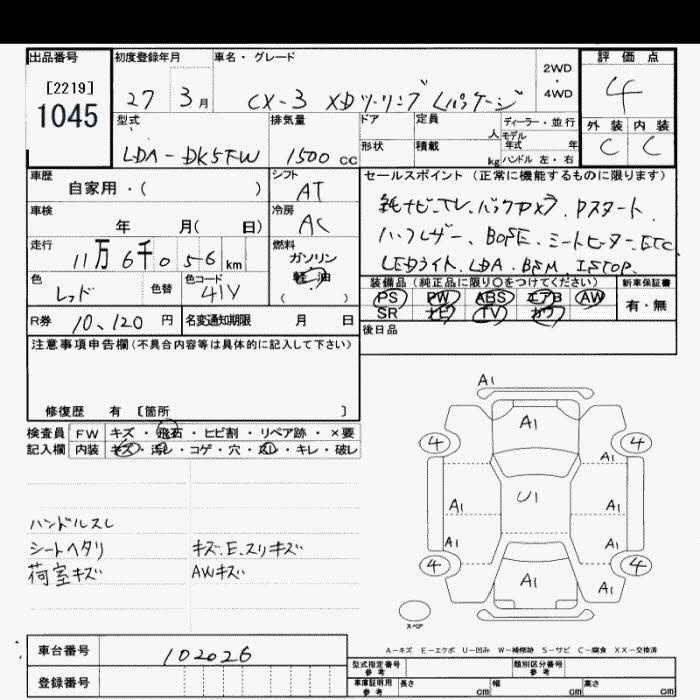 出品番号 初度登録年月 車名・グレード 評価点
[2219]
1045
27 3月 CX-3 XDツーリング Lパッケージ 2WD・4WD 4
型式 排気量 ドア 定員 人 ディーラー・並行 外装 内装
LDA-DK5FW 1500cc 形状 積載 kg モデル年式 年 C C
ハンドル 左・右
車歴 シフト セールスポイント (正常に機能するものに限ります)
自家用・( ) AT 純ナビ.TV.バックカメラ.Pスタート.
車検 冷房
年 月( 日) AC ハーフレザー.BOSE.シートヒーター.ETC
走行 燃料
11万6千056km ガソリン LEDライト.LDA.BSM.ISTOP.
軽・油
( )
色 色替 色コード 装備品 (純正品に限り○をつけてください) 新車保証書
レッド 41V PS PW ABS エアB AW 有・無
SR ナビ TV カワ
R券 10,120円 名変通知期限 月 日 後日品
注意事項申告欄 (不具合内容等は具体的に記入して下さい)
修復歴 有 [箇所 ]
検査員 FW キズ・飛石・ヒビ割・リペア跡・×要
記入欄 内装 キズ・汚レ・コゲ・穴・スレ・キレ・破レ
ハンドルスレ
シートヘタリ キズ.E.スリキズ
荷室キズ AWキズ
A1
A1
4 4
A1
A1 U1 A1
A1 A1
4 4
A1 A1
スペア
A-キズ E-エクボ U-凹み W-補修跡 S-サビ C-腐食 XX-交換済
車台番号 102026 型式指定番号 参考 類別区分番号 参考
登録番号 車庫証明用 参考 長さ cm 幅 cm 高さ cm